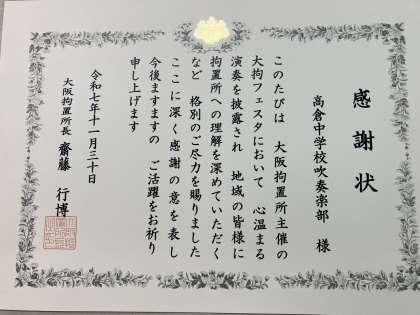 感謝状
高倉中学校吹奏楽部　様
このたびは　大阪拘置所主催の
大拘フェスタにおいて　心温まる
演奏を披露され　地域の皆様に
拘置所への理解を深めていただく
など　格別のご尽力を賜りました
ここに深く感謝の意を表し
今後ますますの　ご活躍をお祈り
申し上げます
令和七年十一月三十日
大阪拘置所長　齋藤　行博